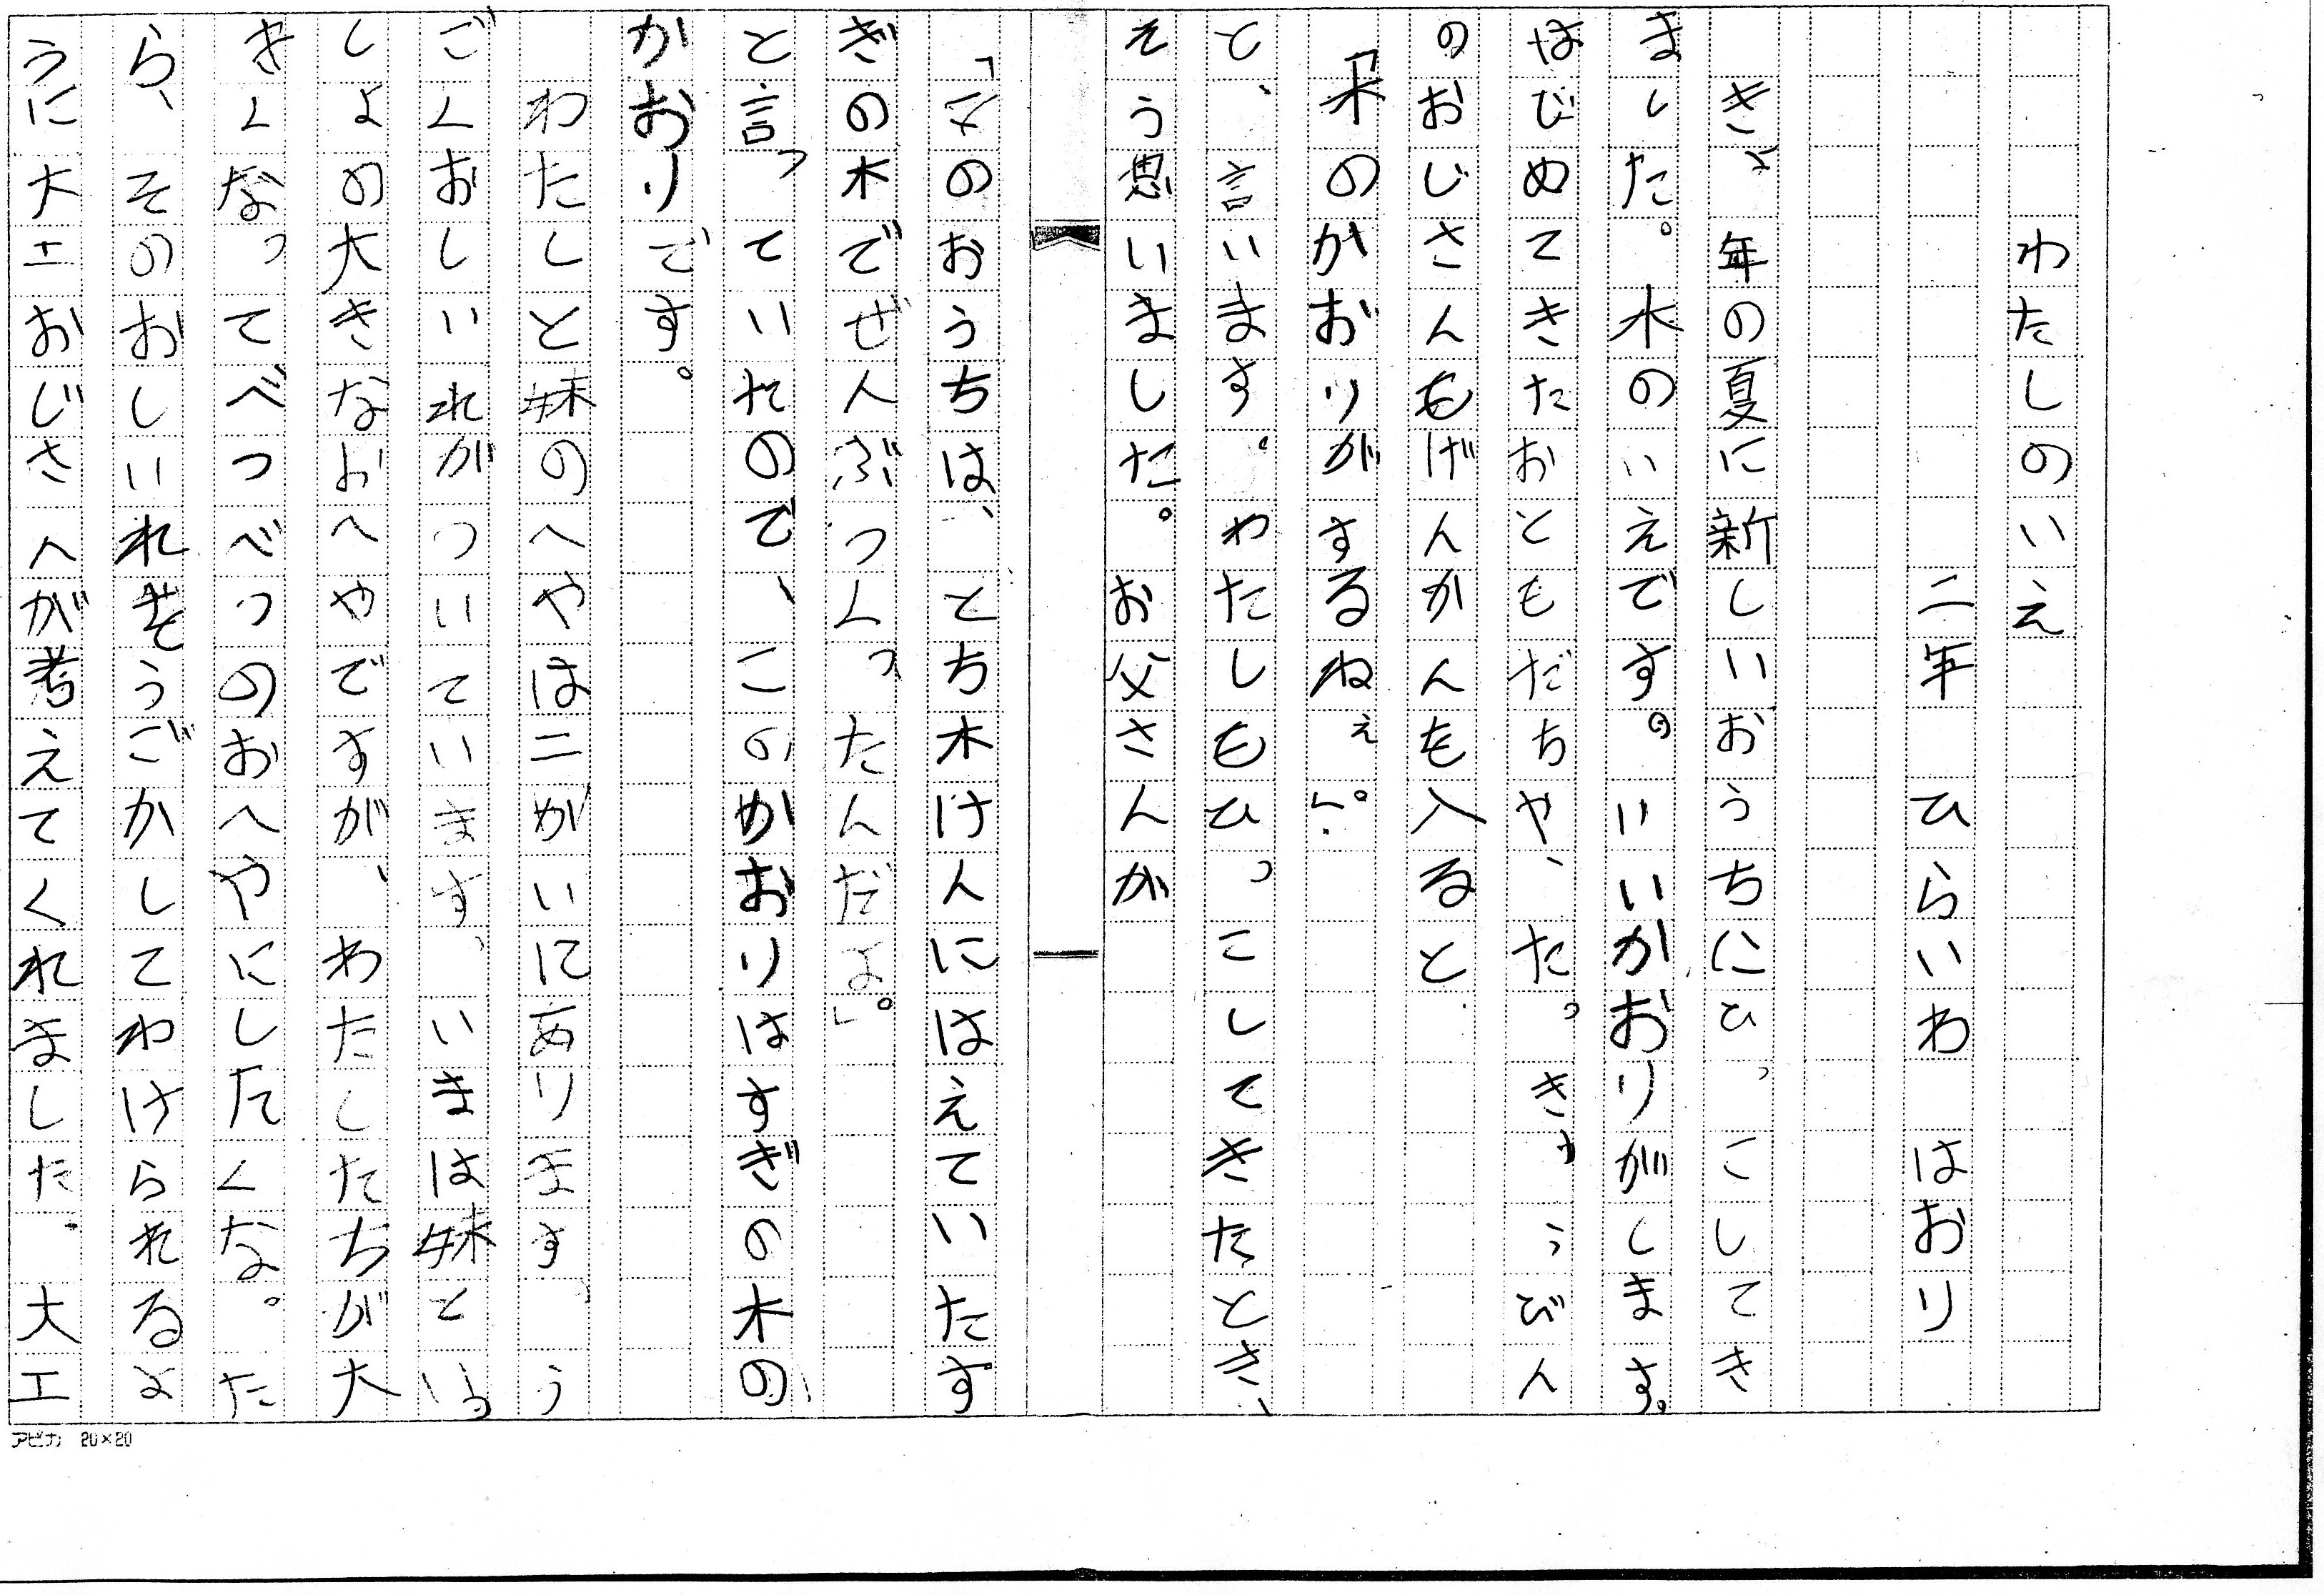 わたしのいえ
二年 ひらいわ はおり
きょ年の夏に新しいおうちにひっこしてき
ました。木のいえです。いいかおりがします。
はじめてきたおともだちや、た。きゅうびん
のおじさんもげんかんも入ると
「木のかおりがするねぇ。」
と、言います。わたしもひっこしてきたとき、
そう思いました。お父さんが
「このおうちは、とち木けんにはえていたす
ぎの木でぜんぶつくったんだよ。」
と言っていれので、このかおりはすぎの木の
かおりです。
わたしと妹のへやは二かいにあります。う
ごくおしいれがついています、いまは妹といっ
しょの大きなおへやですが、わたしたちが大
きくなってべつべつのおへやにしたくな。た
ら、そのおしいれをうごかしてわけられるよ
うに大工おじさんが考えてくれました。大工
アピカ 20×20